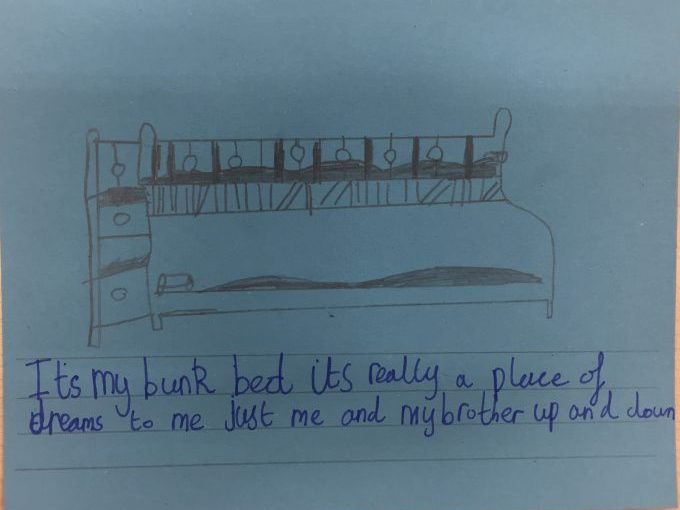 Its my bunk bed its really a place of
dreams to me just me and my brother up and down